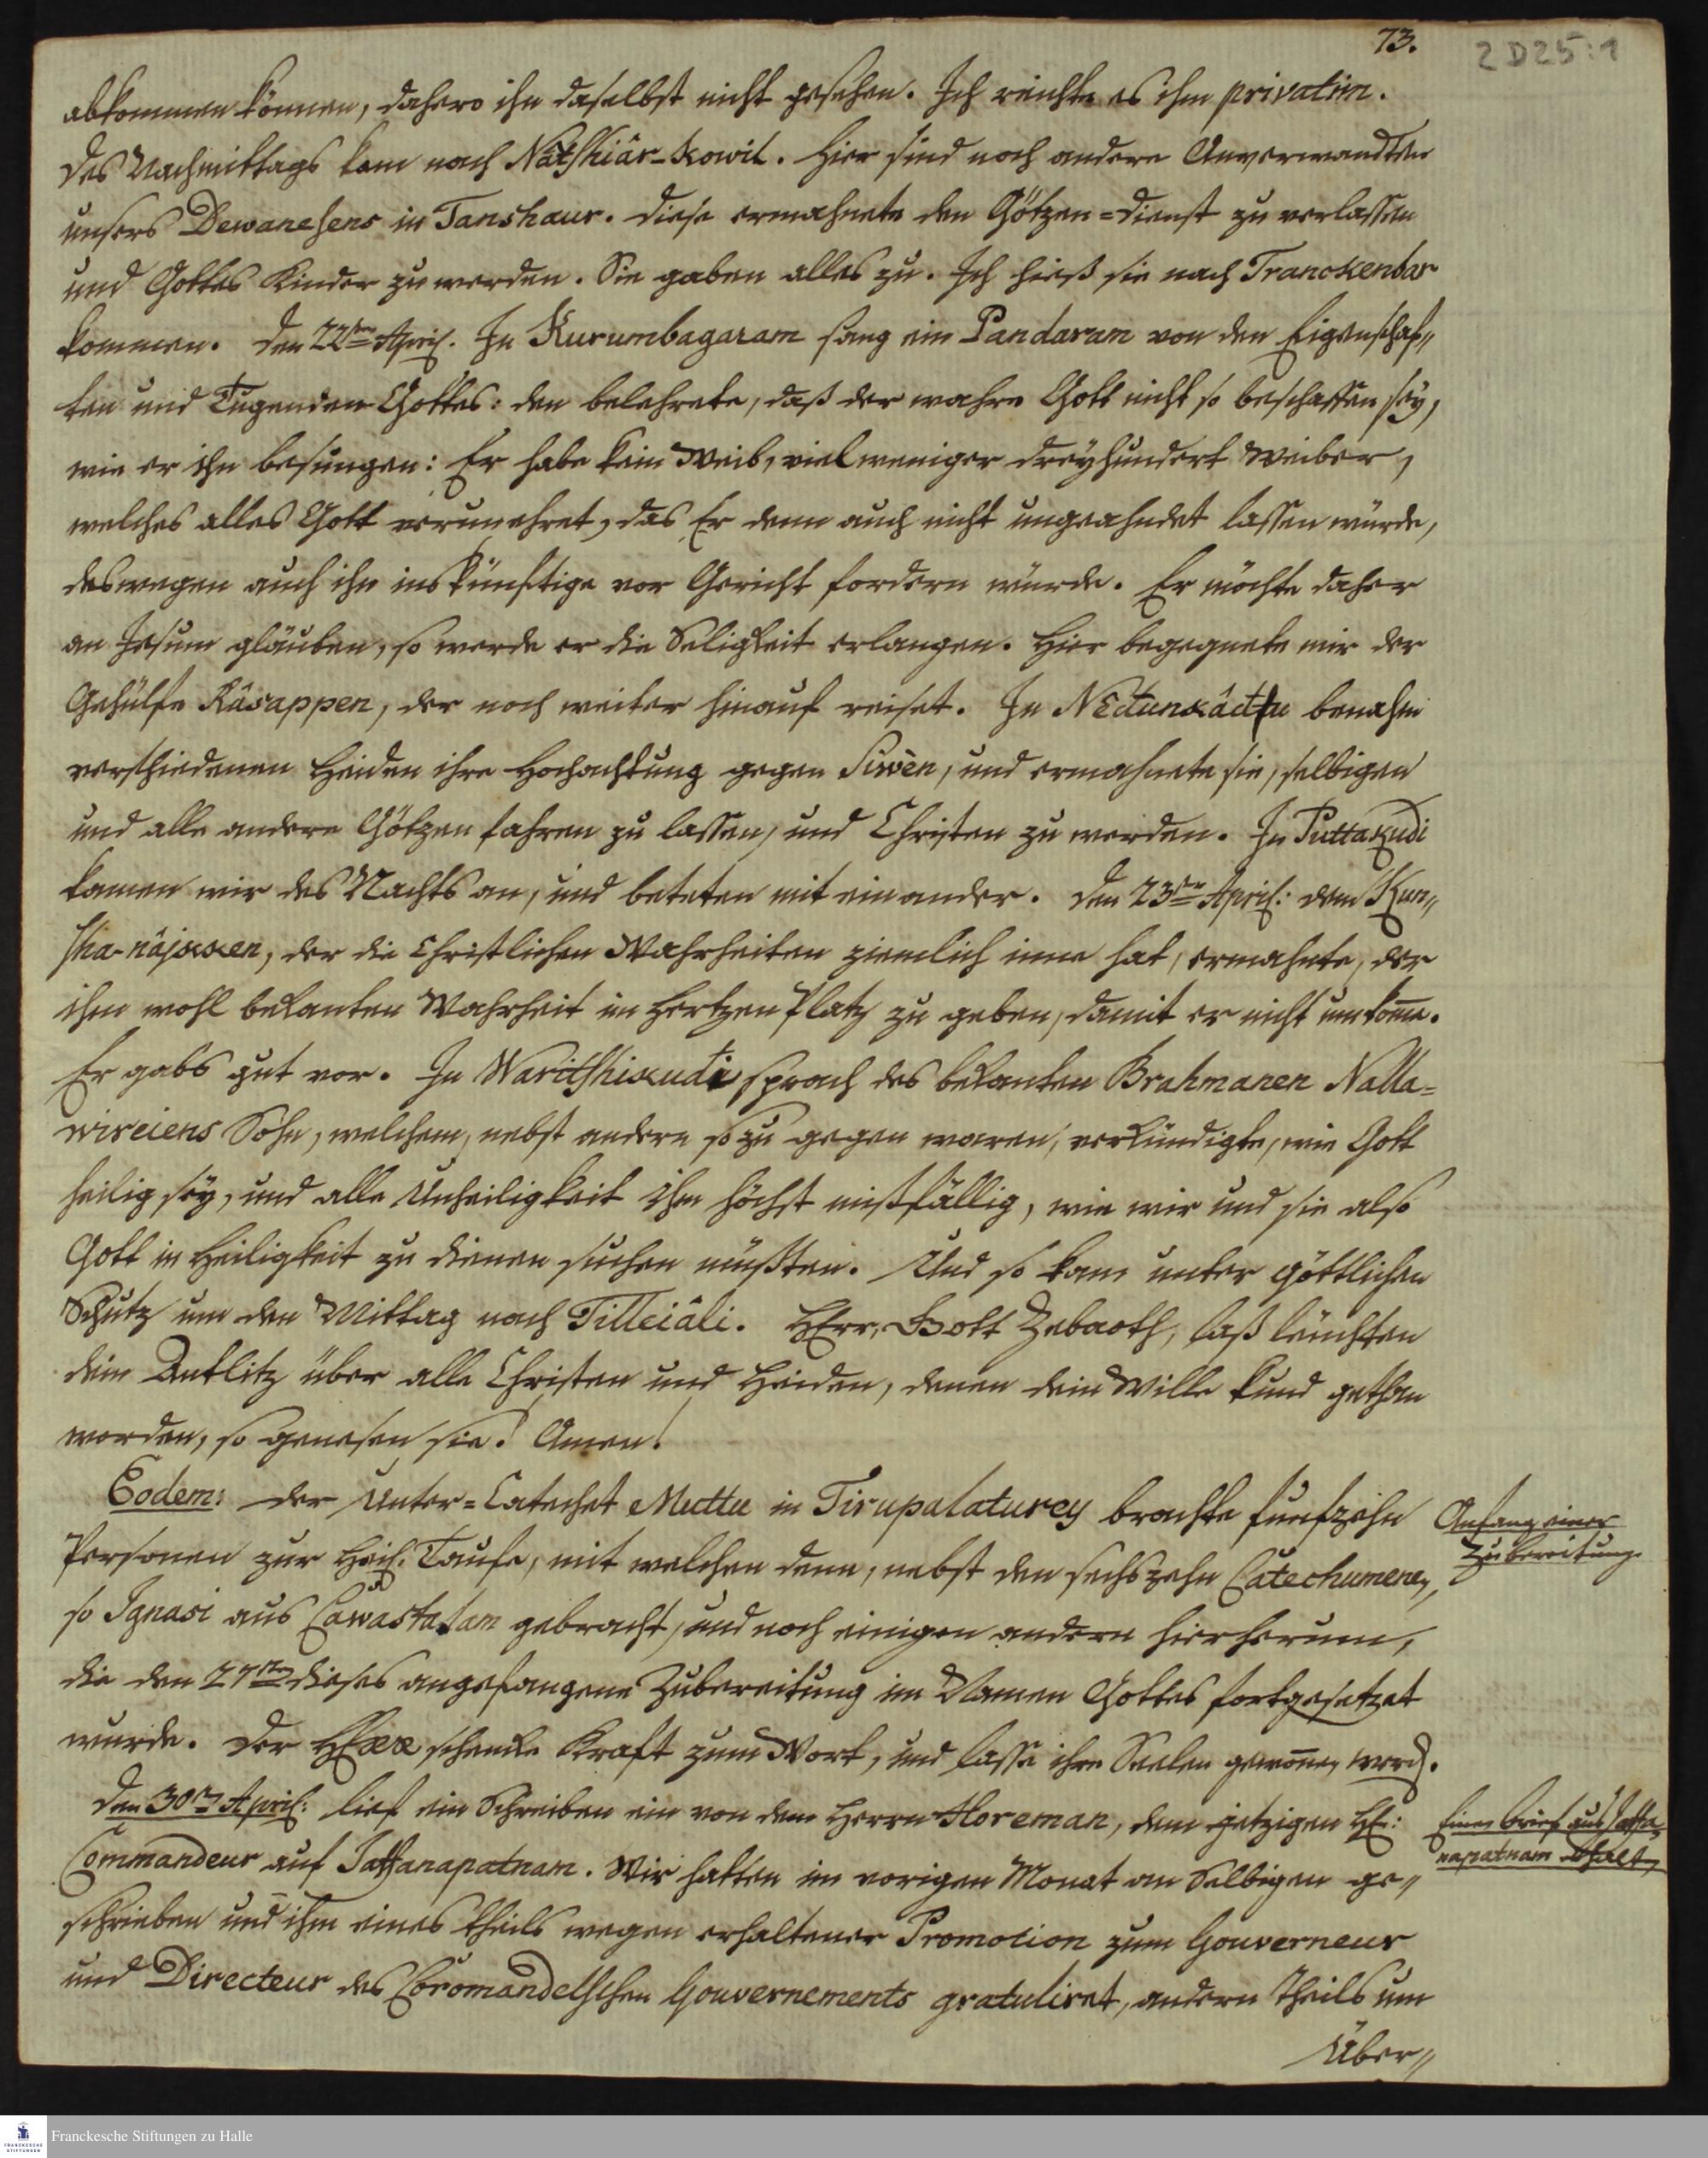 73.
2 D25:1
abkommen können, dahero ihn daselbst nicht gesehen. Ich reichte es ihm privatim.
Des Nachmittags kam nach Nâtshiâr-Kowil. Hier sind noch andere Anverwandten
unsers Dewanesens in Tanshaur. Diese ermahnete den Götzen=Dienst zu verlassen
und Gottes Kinder zu werden. Sie gaben alles zu. Ich hieß sie nach Tranckenbar
kommen. Den 22sten April. In Kurumbagaram sang ein Pandaram von den Eigenschaf„
ten und Tugenden Gottes: den belehrete, daß der wahre Gott nicht so beschaffen sey,
wie er ihn besungen: Er habe kein Weib, vielweniger dreyhundert Weiber,
welches alles Gott verunehret, das Er denn auch nicht ungeahndet lassen würde,
deswegen auch ihn inskünftige vor Gericht fordern würde. Er möchte daher
an Jesum gläuben, so werde er die Seligkeit erlangen. Hier begegnete mir der
Gehülfe Râsappen, der noch weiter hinauf reiset. In Nedunkâdu benahm
verschiedenen Heiden ihre Hochachtung gegen Siwèn, und ermahnete sie, selbigen
und alle andere Götzen fahren zu lassen, und Christen zu werden. In Puttakudi
kamen wir des Nachts an, und beteten mit einander. Den 23sten April: dem Kun„
sha-nâjkken, der die Christlichen Wahrheiten ziemlich inne hat, ermahnte, der
ihm wohl bekanten Wahrheit im Hertzen Platz zu geben, damit er nicht umkom̄e.
Er gabs gut vor. In Waritshikudi sprach des bekanten Brahmanen Nalla=
wireiens Sohn, welchem, nebst andern so zu gegen waren, verkündigte, wie Gott
heilig sey, und alle Unheiligkeit ihm höchst mißfällig, wie wir und sie also
Gott in Heiligkeit zu dienen suchen müßten. Und so kam unter göttlichen
Schutz um den Mittag nach Tilleiâli. HErr, Gott Zebaoth, laß leuchten
dein Antlitz über alle Christen und Heiden, denen dein Wille kund gethan
worden, so genesen sie! Amen!
Eodem: Der Unter=Catechet Muttu in Tirupalaturey brachte funfzehn
Personen zur Heil. Taufe, mit welchen denn, nebst den sechszehn Catechumenen,
so Ignasi aus Cawastalam gebracht, und noch einigen andern hierherum,
die den 27sten dieses angefangene Zubereitung im Namen Gottes fortgesetzet
wurde. Der HErr schenke Kraft zum Wort, und lasse ihre Seelen gewon̄en werd.
Anfang einer
Zubereitung.
Den 30sten April: lief ein Schreiben ein von dem Herrn Noreman, dem jetzigen HE:
Commandeur auf Jaffanapatnam. Wir hatten im vorigen Monat an Selbigen ge„
schrieben und ihm eines theils wegen erhaltener Promotion zum Gouverneur
und Directeur des Coromandelschen Gouvernements gratuliret, andern theils um
Einen Brief aus Jaffa„
napatnam erhalt.
Über„
Franckesche Stiftungen zu Halle
FRANCKESCHE
STIFTUNGEN